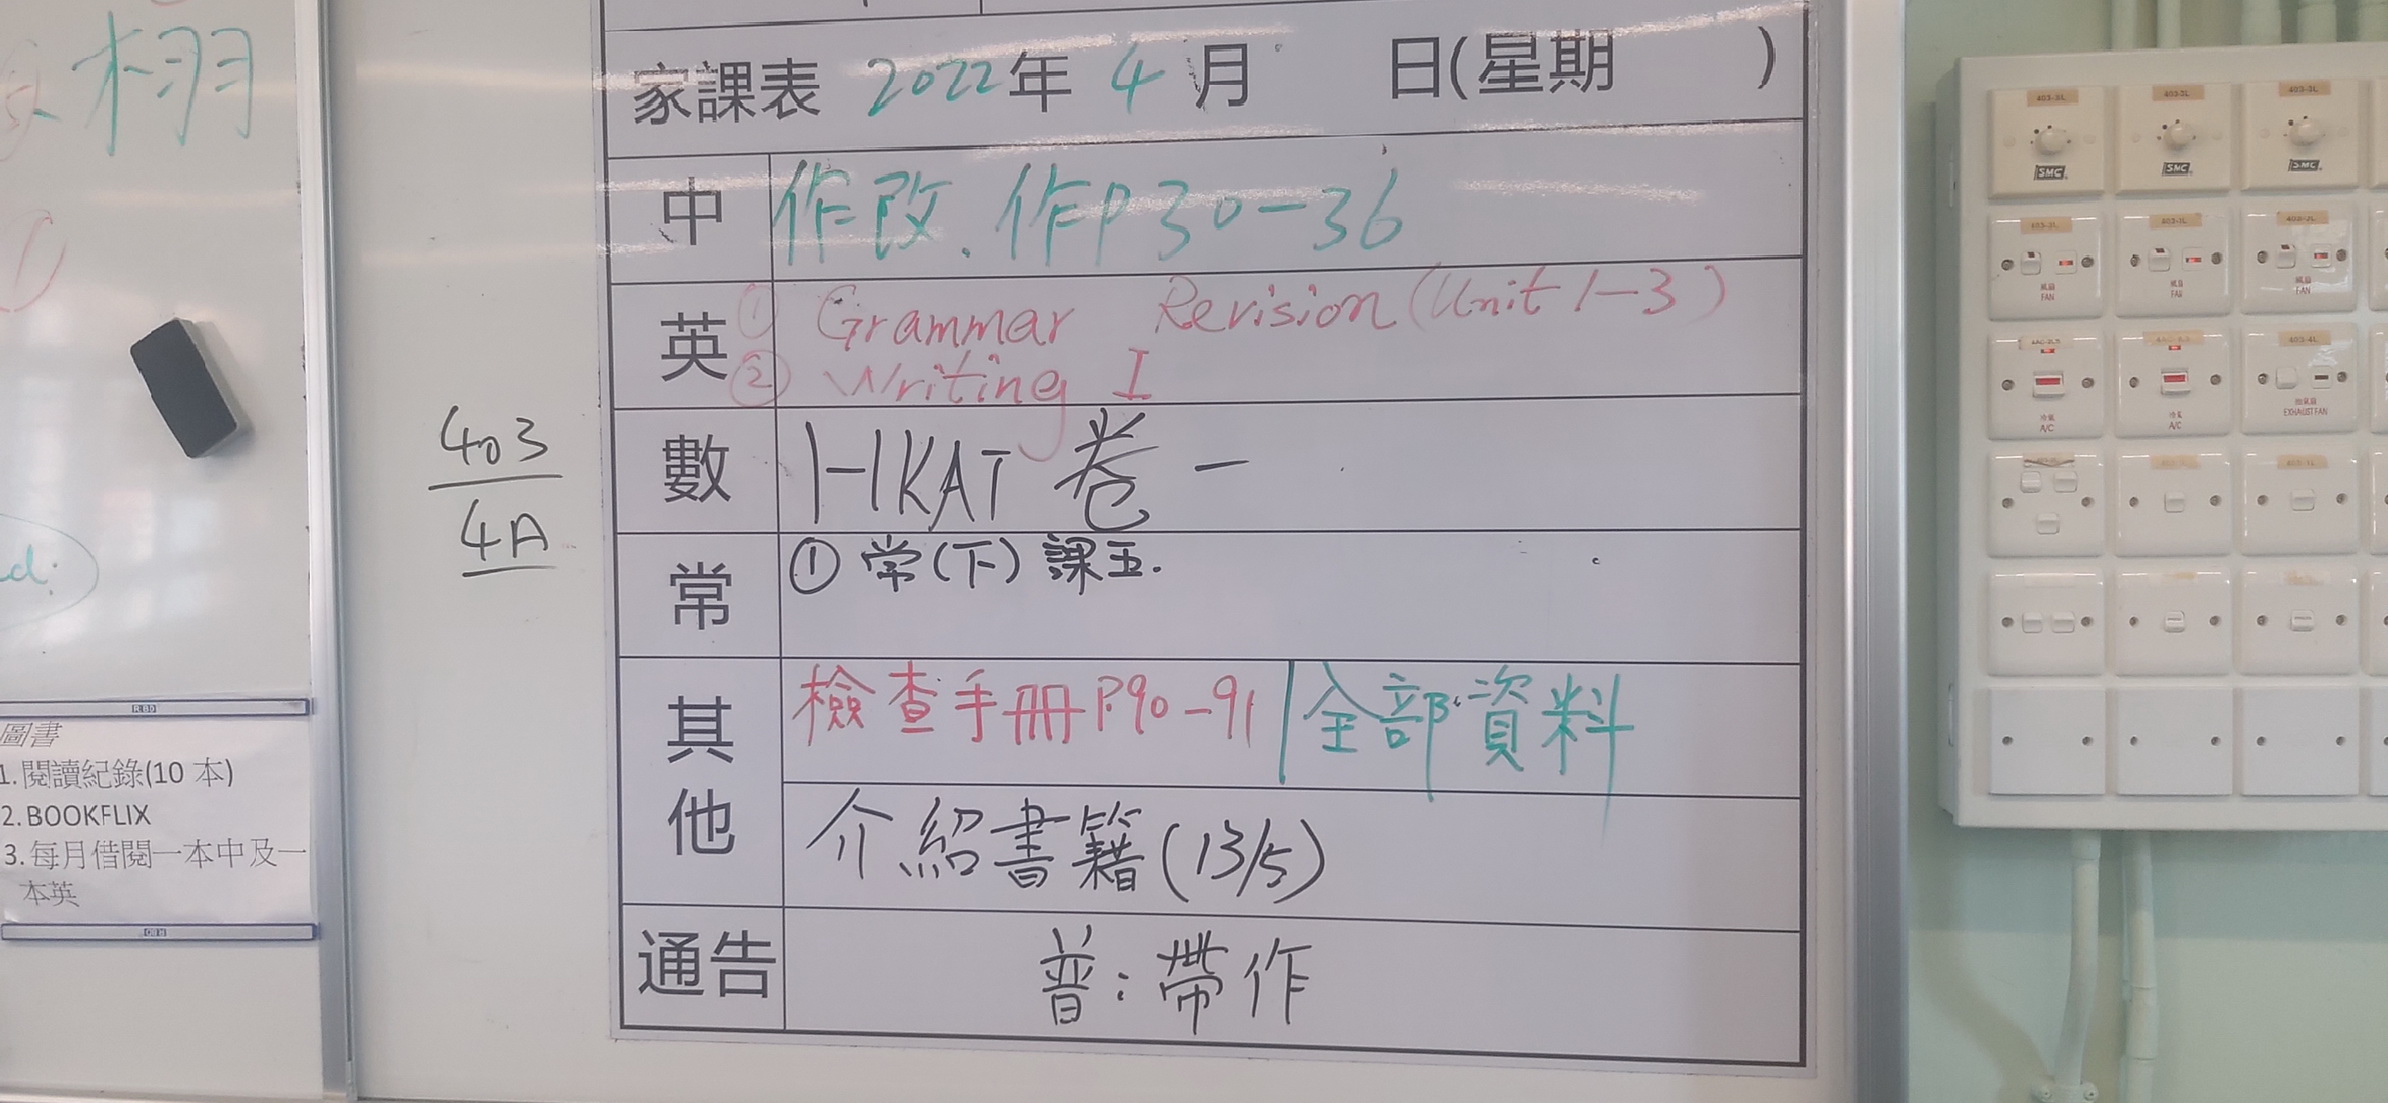 栩
家課表 2022年 4月 日(星期 )
中 作改.作P30-36
英 ① Grammar Revision (Unit 1-3)
② Writing I
數 HKAT 卷一
常 ① 常(下) 課五.
其他 檢查手冊P.90-91 | 全部資料
介紹書籍(13/5)
通告 普:帶作
403
4A
d.
圖書
1.閱讀紀錄(10 本)
2.BOOKFLIX
3.每月借閱一本中及一
本英
403-3L 403-3L
SMC SMC SMC
403-2L 403-1L
風扇 風扇 風扇
FAN FAN FAN
冷氣 冷氣 抽氣扇
A/C A/C EXHAUST FAN